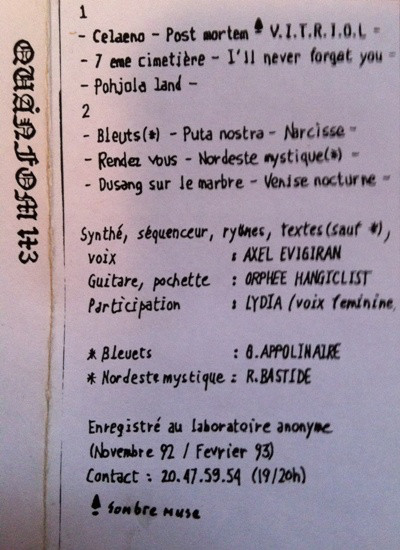 1
- Celaeno - Post mortem V.I.T.R.I.O.L -
- 7 eme cimetière - I'll never forget you -
- Pohjola land -
2
- Bleuts(*) - Puta nostra - Narcisse -
- Rendez vous - Nordeste mystique(*) -
- Dusang sur le marbre - Venise nocturne -
Synthé, séquenceur, rytmes, textes(sauf *),
voix : AXEL EVIGIRAN
Guitare, pochette : ORPHEE HANGICLIST
Participation : LYDIA (voix feminine
* Bleuets : G.APPOLINAIRE
* Nordeste mystique : R.BASTIDE
Enregistré au laboratoire anonyme
(Novembre 92 / Fevrier 93)
Contact : 20.47.59.54 (19/20h)
Sombre muse